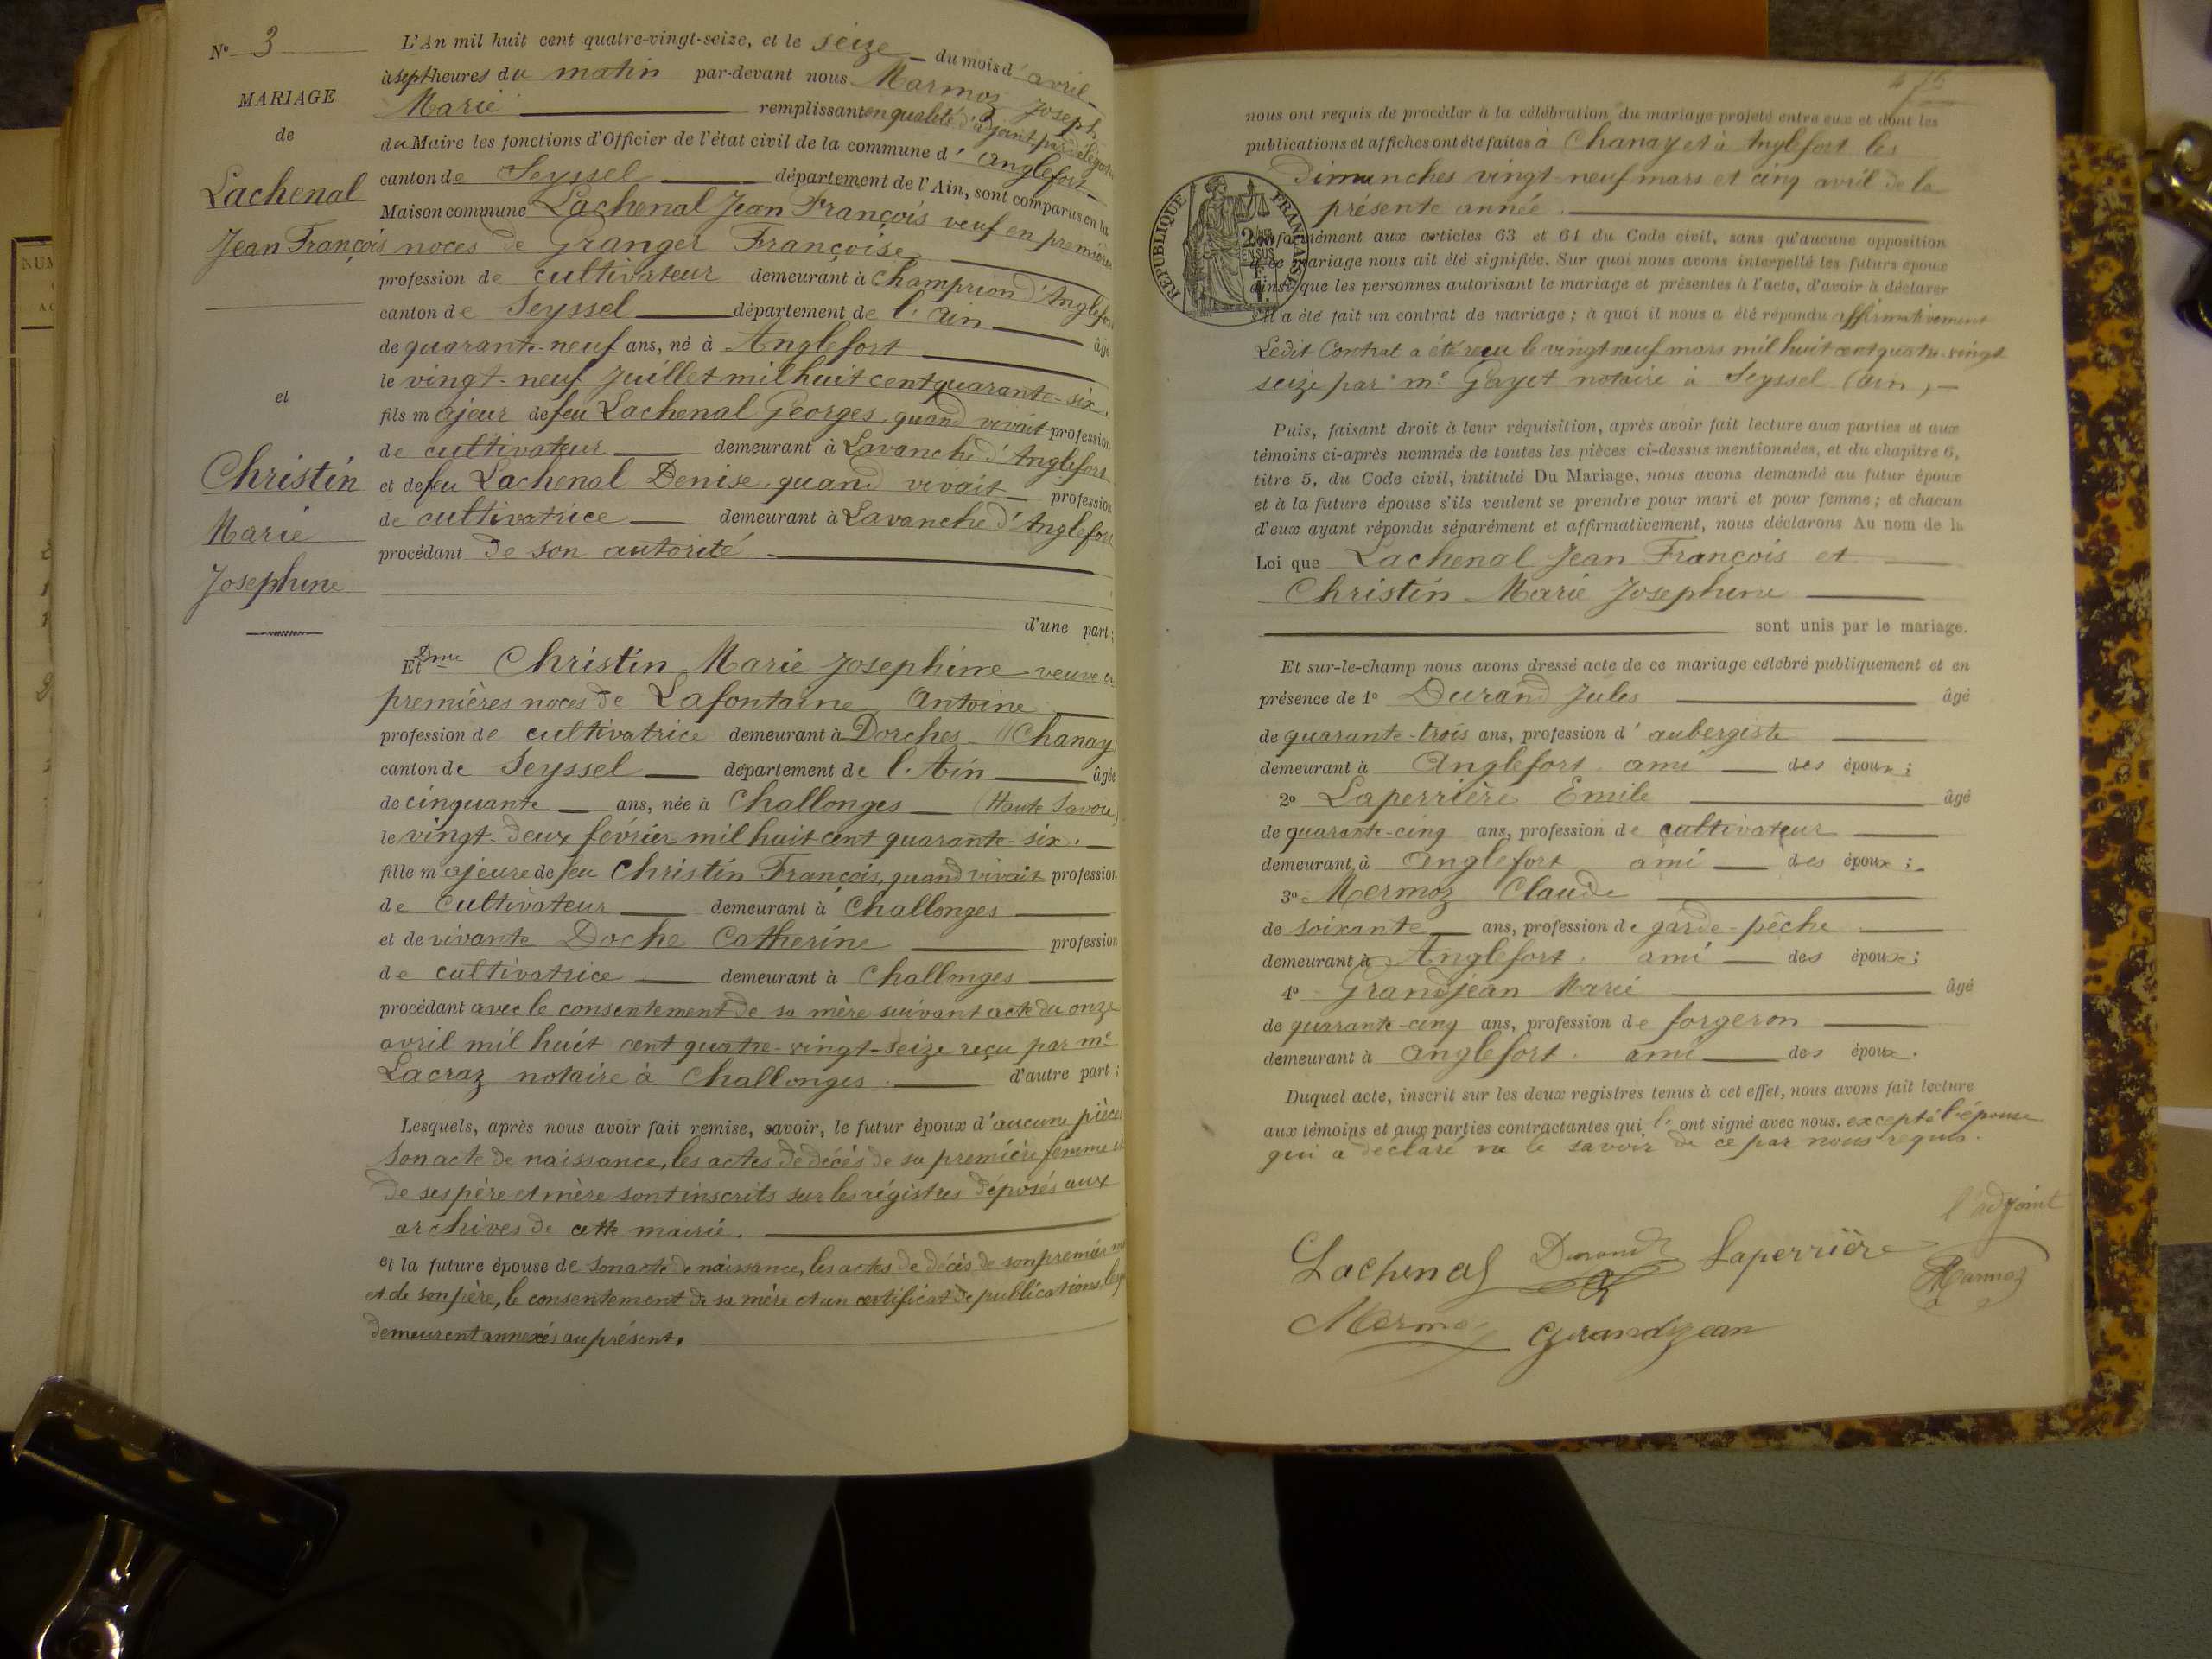 N° 3
MARIAGE
de
Lachenal
Jean François
et
Christin
Marie
Josephine
L'An mil huit cent quatre-vingt-seize, et le seize du mois d'avril
à sept heures du matin par-devant nous Marmoz Joseph
Marie remplissant en qualité d'adjoint par délégation
du Maire les fonctions d'Officier de l'état civil de la commune d'Anglefort
canton de Seyssel département de l'Ain, sont comparus en la
Maison commune Lachenal Jean François veuf en premières
noces de Granger Françoise
profession de cultivateur demeurant à Champrion d'Anglefort
canton de Seyssel département de l'Ain âgé
de quarante-neuf ans, né à Anglefort
le vingt-neuf Juillet mil huit cent quarante-six.
fils majeur de feu Lachenal Georges, quand vivait profession
de cultivateur demeurant à Lavanche d'Anglefort
et de feu Lachenal Denise, quand vivait profession
de cultivatrice demeurant à Lavanche d'Anglefort
procédant de son autorité
d'une part;
Et Dme Christin Marie Josephine veuve en
premières noces de Lafontaine Antoine
profession de cultivatrice demeurant à Dorches (Chanay
canton de Seyssel département de l'Ain âgée
de cinquante ans, née à Challonges (Haute Savoie)
le vingt-deux février mil huit cent quarante-six.
fille majeure de feu Christin François, quand vivait profession
de cultivateur demeurant à Challonges
et de vivante Doche Catherine profession
de cultivatrice demeurant à Challonges
procédant avec le consentement de sa mère suivant acte du onze
avril mil huit cent quatre-vingt-seize reçu par me
Lacraz notaire à Challonges. d'autre part;
Lesquels, après nous avoir fait remise, savoir, le futur époux d'aucune pièce
Son acte de naissance, les actes de décès de sa première femme et
de ses père et mère sont inscrits sur les régistres déposés aux
archives de cette mairie.
et la future épouse de son acte de naissance, les actes de décès de son premier
et de son père, le consentement de sa mère et un certificat de publications,
demeurent annexés au présent.
nous ont requis de procéder à la célébration du mariage projeté entre eux et dont les
publications et affiches ont été faites à Chanay et à Anglefort les
Dimanches vingt-neuf mars et cinq avril de la
présente année.
RÉPUBLIQUE FRANÇAISE
conformément aux articles 63 et 64 du Code civil, sans qu'aucune opposition
à ce mariage nous ait été signifiée. Sur quoi nous avons interpellé les futurs époux
ainsi que les personnes autorisant le mariage et présentes à l'acte, d'avoir à déclarer
s'il a été fait un contrat de mariage; à quoi il nous a été répondu affirmativement
Ledit Contrat a été reçu le vingt neuf mars mil huit cent quatre-vingt
seize par me Gayet notaire à Seyssel (Ain)
Puis, faisant droit à leur réquisition, après avoir fait lecture aux parties et aux
témoins ci-après nommés de toutes les pièces ci-dessus mentionnées, et du chapitre 6,
titre 5, du Code civil, intitulé Du Mariage, nous avons demandé au futur époux
et à la future épouse s'ils veulent se prendre pour mari et pour femme; et chacun
d'eux ayant répondu séparément et affirmativement, nous déclarons Au nom de la
Loi que Lachenal Jean François et
Christin Marie Josephine
sont unis par le mariage.
Et sur-le-champ nous avons dressé acte de ce mariage célébré publiquement et en
présence de 1° Durand Jules âgé
de quarante-trois ans, profession d'aubergiste
demeurant à Anglefort ami des époux;
2° Laperrière Emile âgé
de quarante-cinq ans, profession de cultivateur
demeurant à Anglefort ami des époux;
3° Mermoz Claude
de soixante ans, profession de garde-pêche
demeurant à Anglefort. ami des époux;
4° Grandjean Marie âgé
de quarante-cinq ans, profession de forgeron
demeurant à Anglefort. ami des époux.
Duquel acte, inscrit sur les deux registres tenus à cet effet, nous avons fait lecture
aux témoins et aux parties contractantes qui l'ont signé avec nous. excepté l'épouse
qui a déclaré ne le savoir de ce par nous requis.
l'adjoint
Lachenal Durand Laperrière
Marmoz
Mermoz Grandjean